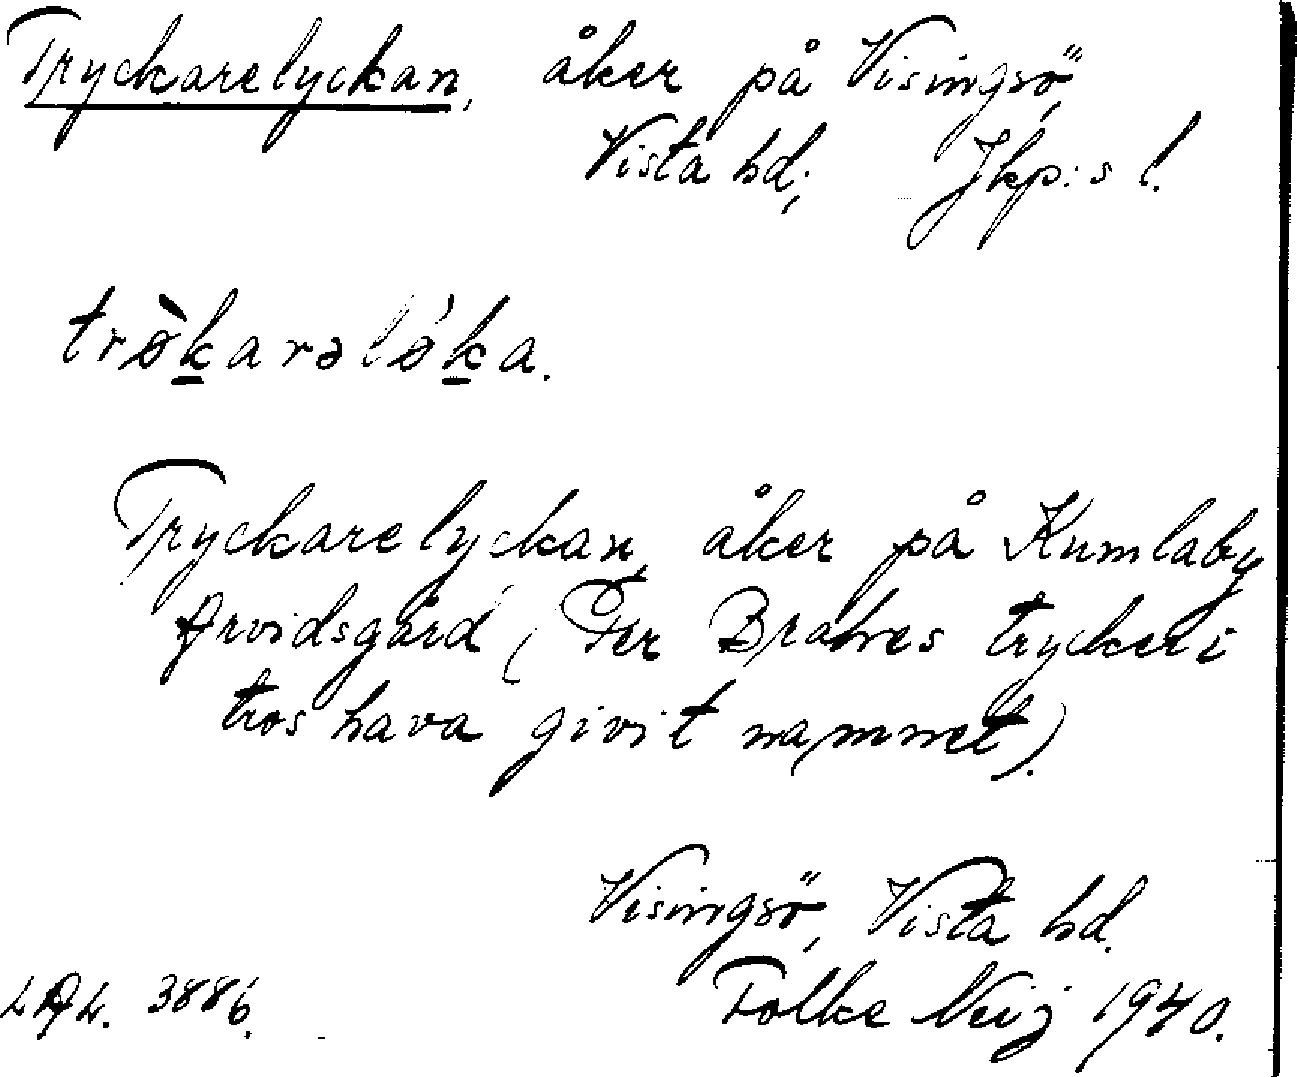 Tryckarelyckan, åker på Visingsö,
Vista hd; Jkp:s l.
trø̀k̲arəlǿk̲a.
Tryckarelyckan, åker på Kumlaby
Arvidsgård (Per Brahes tryckeri
tros hava givit namnet).
Visingsö, Vista hd.
Folke Neij 1940.
LAL. 3886.